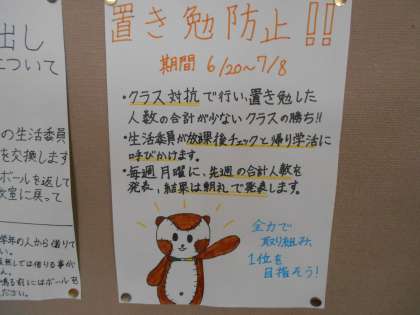 置き勉防止!!
期間 6/20~7/8
・クラス対抗で行い、置き勉した
人数の合計が少ないクラスの勝ち!!
・生活委員が放課後チェックと帰り学活に
呼びかけます。
・毎週月曜に、先週の合計人数を
発表、結果は朝礼で発表します。
全力で
取り組み、
1位を
目指そう!
出し
について
の生活委員
を交換します
ボールを返して
教室に戻って
学年の人から借りて
い。
ください。